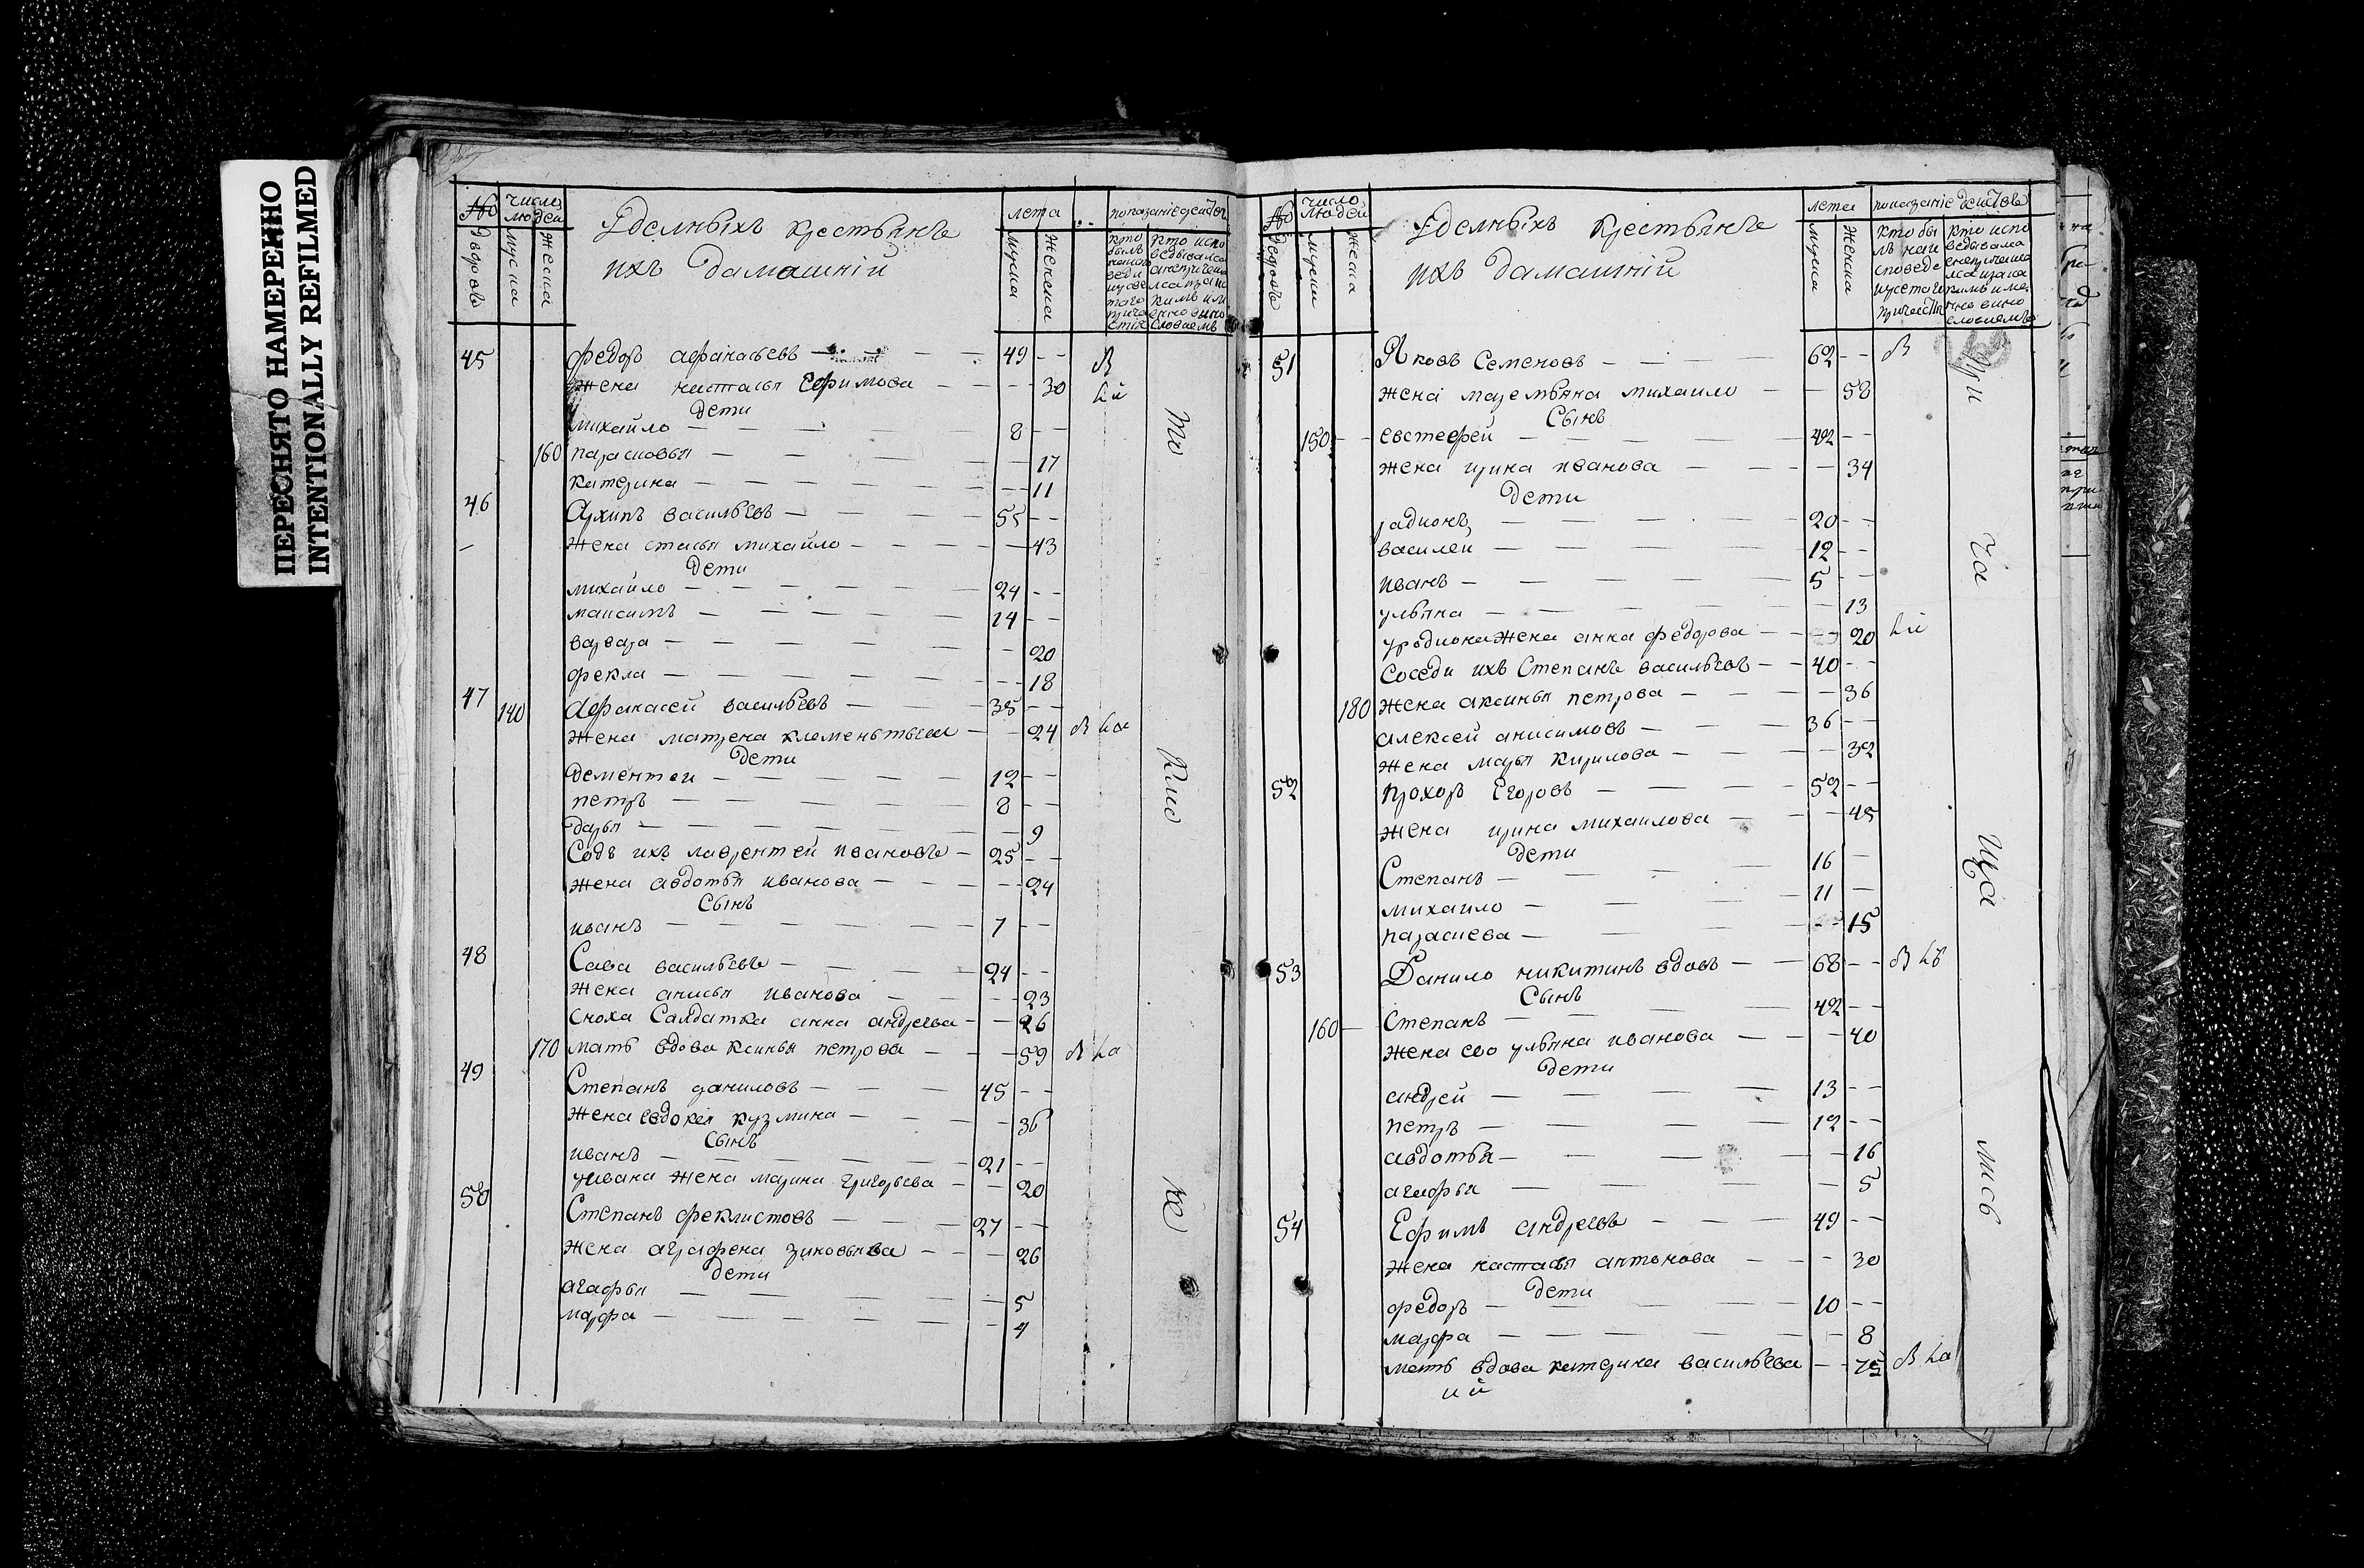 ПЕРЕСНЯТО НАМЕРЕННО
INTENTIONALLY REFILMED
№ дворовъ
число людей
мужска
женска
Удельныхъ крестьянъ
ихъ дамашнiй
лета
мужска
женска
показанiе действъ
45 федоръ афанасьевъ 49
жена настасья Ефимова 30
дети
михайло 8
160 парасковья 17
катерина 11
46 Архипъ васильевъ 55
жена михайло 43
дети
михайло 24
максимъ 14
варвара 20
фекла 18
47 140 Афанасей васильевъ 35
жена матрена клементьева 24
дети
дементеи 12
петръ 8
дарья 9
Содъ ихъ лаврентей ивановъ 25
жена авдотья иванова 24
Сынъ
иванъ 1
48 Сава васильевъ 24
жена анисья иванова 23
сноха Салдатка анна андреева 26
170 мать вдова ксинья петрова 59
49 Степанъ даниловъ 45
жена евдокея кузмина 36
Сынъ
иванъ 21
уивана жена марина григорьева 20
50 Степанъ феклистовъ 27
жена аграфена зиновьева 26
дети
агафья 5
марфа 4
то
кмо
же
№ дворовъ
число людей
мужска
женска
Удельныхъ крестьянъ
ихъ дамашнiй
лета
мужска
женска
показанiе действъ
51 Яковъ Семеновъ 62
жена маремьяна михаило 58
Сынъ
150 евстефей 42
жена ирина иванова 34
дети
радионъ 20
василей 12
иванъ 5
ульяна 13
урадиона жена анна федорова 20
Соседи ихъ Степанъ васильевъ 40
180 жена аксинья петрова 36
алексей анисимовъ 36
жена марья кирилова 32
52 прохоръ Егоровъ 52
жена ирина михаилова 45
дети
Степанъ 16
михаило 11
парасцева 15
53 Данило никитинъ вдовъ 68
Сынъ
Степанъ 42
160 жена ево ульяна иванова 40
дети
андрей 13
петръ 12
авдотья 16
агафья 5
54 Ефимъ андреевъ 49
жена настасья антонова 30
дети
федоръ 10
марфа 8
мать вдова катерина васильева 75
при
ча
ща
лись